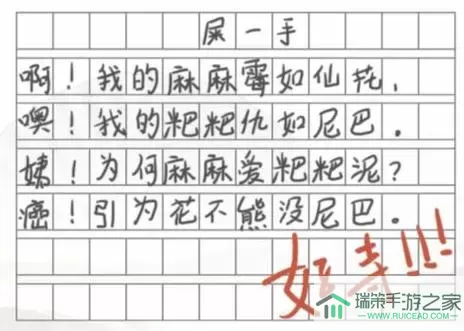 屎一手
啊！我的麻麻霉如仙花，
噢！我的粑粑仇如尼巴。
姨！为何麻麻爱粑粑泥？
癌！引为花不熊没尼巴。
好寺!!!
瑞策手游之家
WWW.RUICEAD.COM